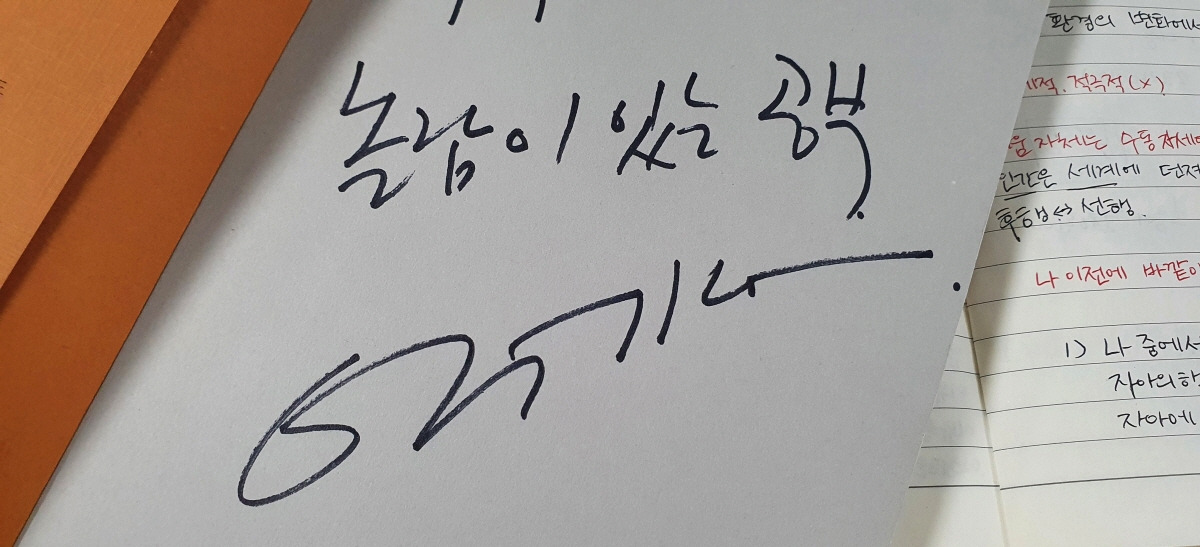 놀람이 있는 공백.
환경의 변화에서
적극적(x)
자체는 수동
인간은 세계에 던져
후행↔선행.
나 이전에 바깥이
1) 나 중에서
자아의
자아에